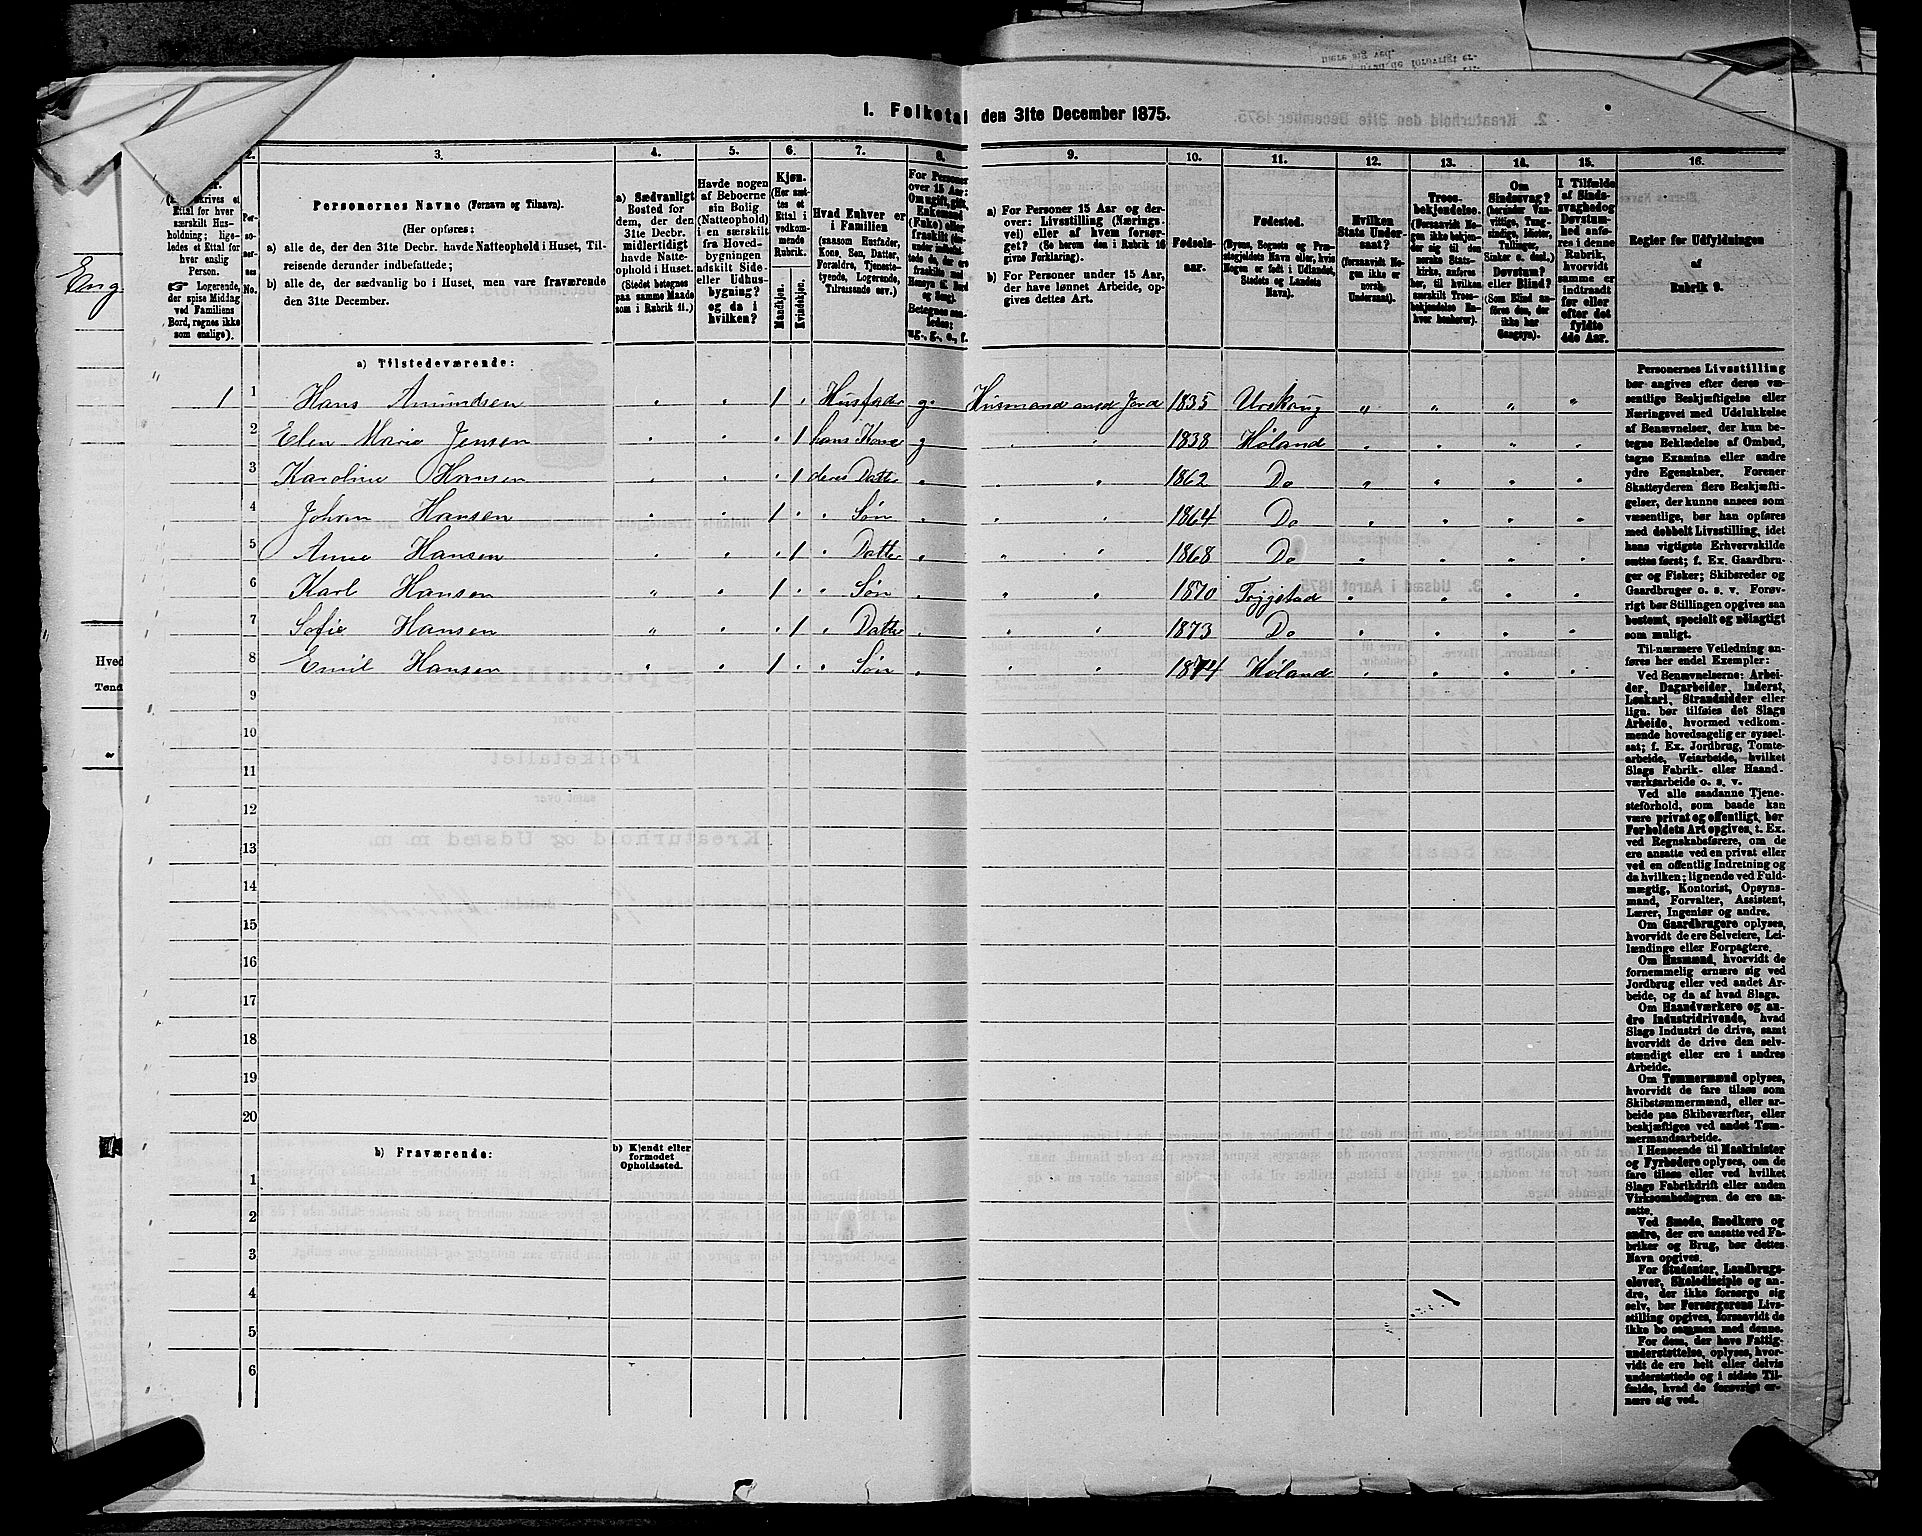 1. Folketal den 31te December 1875.
2. 3. 4. 5. 6. 7. 8. 9. 10. 11. 12. 13. 14. 15. 16.
Ettal for hver
særskilt Hus-
holdning; lige-
ledes et Ettal for
hver enslig
Person.
☞ Logerende,
der spise Middag
ved Familiens
Bord, regnes ikke
som enslige).
Per-
so-
ner-
nes
No.
Personernes Navne (Fornavn og Tilnavn).
(Her opføres:
a) alle de, der den 31te Decbr. havde Natteophold i Huset, Til-
reisende derunder indbefattede;
b) alle de, der sædvanlig bo i Huset, men vare fraværende
den 31te December.
a) Sædvanligt
Bosted for
dem, der den
31te Decbr.
midlertidigt
havde Natte-
ophold i Huset.
(Stedet betegnes
paa samme Maade
som i Rubrik 11.)
Havde nogen
af Beboerne
sin Bolig
(Natteophold)
i en særskilt
fra Hoved-
bygningen
adskilt Side-
eller Udhus-
bygning?
og da i
hvilken?
Kjøn.
(Her sæt-
tes et
Ettal i
vedkom-
mende
Rubrik.
Mandkjøn.
Kvindekjøn.
Hvad Enhver er
i Familien
(saasom Husfader,
Kone, Søn, Datter,
Forældre, Tjeneste-
tyende, Logerende,
Tilreisende osv.)
For Personer
over 15 Aar:
Om ugift, gift,
Enkemand
(Enke) eller
fraskilt
a) For Personer 15 Aar og der-
over: Livsstilling (Nærings-
vei) eller af hvem forsør-
get? (Se herom den i Rubrik 16
givne Forklaring).
b) For Personer under 15 Aar,
der have lønnet Arbeide, op-
gives dettes Art.
Fødsels-
aar.
Fødested.
(Byens, Sognets og Præ-
stegjeldets Navn eller, hvis
Nogen er født i Udlandet,
Stedets og Landets
Navn).
Hvilken
Stats Under-
saat?
(forsaavidt No-
gen ikke er
norsk
Undersaat).
Troes-
bekjendelse.
(Forsaavidt No-
gen ikke bekjen-
der sig til den
norske Stats-
kirke, anføres
her, til hvilken
særskilt Troes-
bekjendelse En-
hver henhører).
Om
Sindssvag?
(herunder Van-
vittige, Tung-
sindige, Idioter,
Tullinger,
Sinker o. desl.)
Døvstum?
eller Blind?
(Som Blind an-
føres den, der
ikke har
Gangsyn).
I Tilfælde
af Sinds-
svaghed og
Døvstum-
hed anfø-
res i denne
Rubrik,
hvorvidt
samme er
indtraadt
før eller
efter det
fyldte
4de Aar.
Regler for Udfyldningen
af
Rubrik 9.
a) Tilstedeværende:
1 1 Hans Amundsen " " 1 " Husfader g. Husmand med Jord 1835 Urskoug " " " "
2 Elen Marie Jensen " " " 1 hans Kone g " " 1838 Høland " " " "
3 Karoline Hansen " " " 1 deres Datter " " " 1862 Do " " " "
4 Johan Hansen " " 1 " " Søn " " " 1864 Do " " " "
5 Anne Hansen " " " 1 " Datter " " " 1868 Do " " " "
6 Karl Hansen " " 1 " " Søn " " " 1870 Trygstad " " " "
7 Sofie Hansen " " " 1 " Datter " " " 1873 Do " " " "
8 Emil Hansen " " 1 " " Søn " " " 1874 Høland " " " "
9
10
11
12
13
14
15
16
17
18
19
20
b) Fraværende:
b) Kjendt eller
formodet
Opholdssted.
1
2
3
4
5
6
Personernes Livsstilling
bør angives efter deres væ-
sentlige Beskjæftigelse eller
Næringsvei med Udelukkelse
af Benævnelser, der kun be-
tegne Beklædelse af Ombud,
tagne Examina eller andre
ydre Egenskaber. Forener
Skatteyderen flere Beskjæfti-
gelser, der kunne ansees som
væsentlige, bør han opføres
med dobbelt Livsstilling, idet
hans vigtigste Erhvervskilde
sættes først; f. Ex. Gaardbru-
ger og Fisker; Skibsreder og
Gaardbruger o. s. v. Forøv-
rigt bør Stillingen opgives saa
bestemt, specielt og nøiagtigt
som muligt.
Til nærmere Veiledning an-
føres her endel Exempler:
Ved Benævnelserne: Arbei-
der, Dagarbeider, Inderst,
Løskarl, Strandsidder eller
lign. bør tilføies det Slags
Arbeide, hvormed vedkom-
mende hovedsagelig er syssel-
sat; f. Ex. Jordbrug, Tomte-
arbeide, Veiarbeide, hvilket
Slags Fabrik- eller Haand-
værksarbeide o. s. v.
Ved alle saadanne Tjene-
steforhold, som baade kan
være privat og offentligt, bør
Forholdets Art opgives, t. Ex.
ved Regnskabsførere, om de
ere ansatte ved en privat eller
ved en offentlig Indretning og
da hvilken; lignende ved Fuld-
mægtig, Kontorist, Opsyns-
mand, Forvalter, Assistent,
Lærer, Ingeniør og andre.
Om Gaardbrugere oplyses,
hvorvidt de ere Selveiere, Lei-
lændinge eller Forpagtere.
Om Husmænd, hvorvidt de
fornemmelig ernære sig ved
Jordbrug eller ved andet Ar-
beide, og da af hvad Slags.
Om Haandværkere og an-
dre Industridrivende, hvad
Slags Industri de drive, samt
hvorvidt de drive den selv-
stændigt eller ere i andres
Arbeide.
Om Tømmermænd oplyses,
hvorvidt de fare tilsøs som
Skibstømmermænd, eller ar-
beide paa Skibsværfter, eller
beskjæftiges ved andet Tøm-
mermandsarbeide.
I Henseende til Maskinister
og Fyrbødere oplyses, om de
fare tilsøs eller ved hvilket
Slags Fabrikdrift eller anden
Virksomhedsgren de ere an-
satte.
Ved Smede, Snedkere og
andre, der ere ansatte ved Fa-
briker og Brug, bør dettes
Navn opgives.
For Studenter, Landbrugs-
elever, Skoledisciple og an-
dre, der ikke forsørge sig
selv, bør Forsørgerens Livs-
stilling opgives, forsaavidt de
ikke bo sammen med denne.
For dem, der have Fattig-
understøttelse, oplyses, hvor-
vidt de ere helt eller delvis
understøttede og i sidste Til-
fælde, hvad de forøvrigt er-
nære sig ved.
Eng
Hved
Tønd